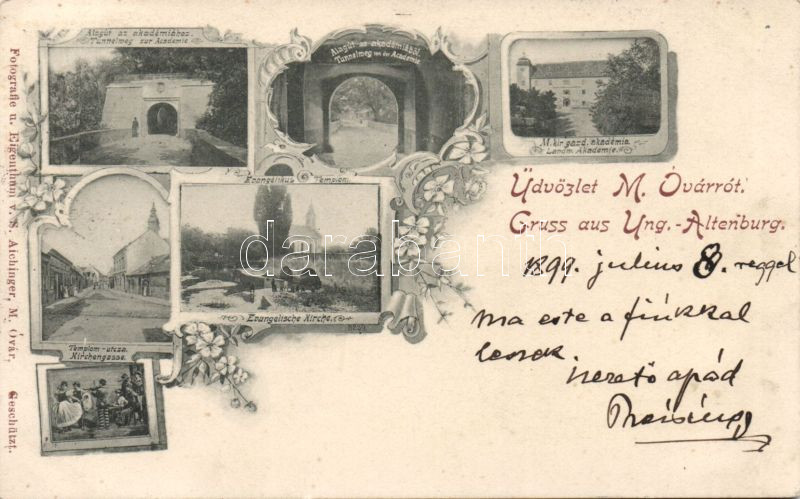 Alagút az akadémiához.
Tunnelweg zur Academie.
Alagút az akadémiából
Tunnelweg von der Academie
M. kir gazd. akadémia.
Landw. Akademie.
Üdvözlet M. Óvárról.
Gruss aus Ung.-Altenburg.
Evangélikus Templom.
Evangelische Kirche.
Templom-utcza.
Kirchengasse.
Fotografie u. Eigenthum v. S. Aichinger, M. Óvár. Geschützt.
1899. julius 8. reggel
ma este a fiúkkal
leszek
szerető apád
darabanth